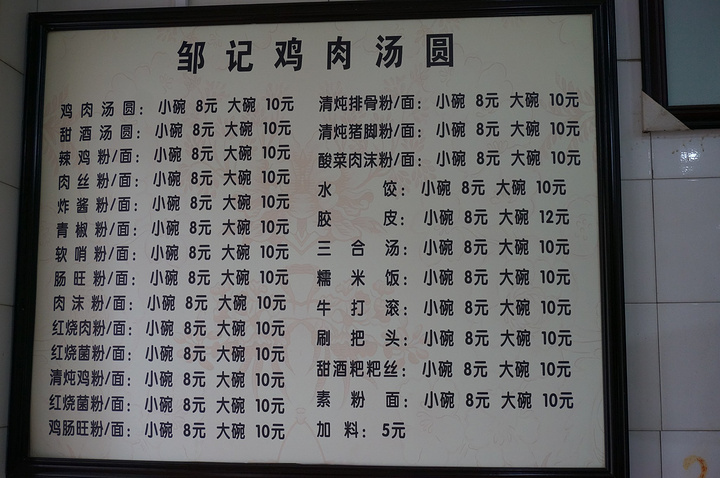 邹记鸡肉汤圆
鸡肉汤圆：小碗 8元 大碗 10元
甜酒汤圆：小碗 8元 大碗 10元
辣鸡粉/面：小碗 8元 大碗 10元
肉丝粉/面：小碗 8元 大碗 10元
炸酱粉/面：小碗 8元 大碗 10元
青椒粉/面：小碗 8元 大碗 10元
软哨粉/面：小碗 8元 大碗 10元
肠旺粉/面：小碗 8元 大碗 10元
肉沫粉/面：小碗 8元 大碗 10元
红烧肉粉/面：小碗 8元 大碗 10元
红烧菌粉/面：小碗 8元 大碗 10元
清炖鸡粉/面：小碗 8元 大碗 10元
红烧菌粉/面：小碗 8元 大碗 10元
鸡肠旺粉/面：小碗 8元 大碗 10元
清炖排骨粉/面：小碗 8元 大碗 10元
清炖猪脚粉/面：小碗 8元 大碗 10元
酸菜肉沫粉/面：小碗 8元 大碗 10元
水饺：小碗 8元 大碗 10元
胶皮：小碗 8元 大碗 12元
三合汤：小碗 8元 大碗 10元
糯米饭：小碗 8元 大碗 10元
牛打滚：小碗 8元 大碗 10元
刷把头：小碗 8元 大碗 10元
甜酒粑粑丝：小碗 8元 大碗 10元
素粉面：小碗 8元 大碗 10元
加料：5元